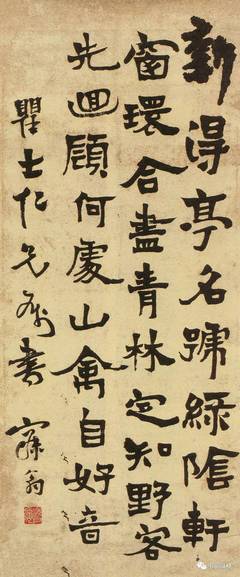 新得亭名號綠隂軒
窗環合盡青林定知野客
先迴顧何處山禽自好音
瞿士仁兄属書 寐翁